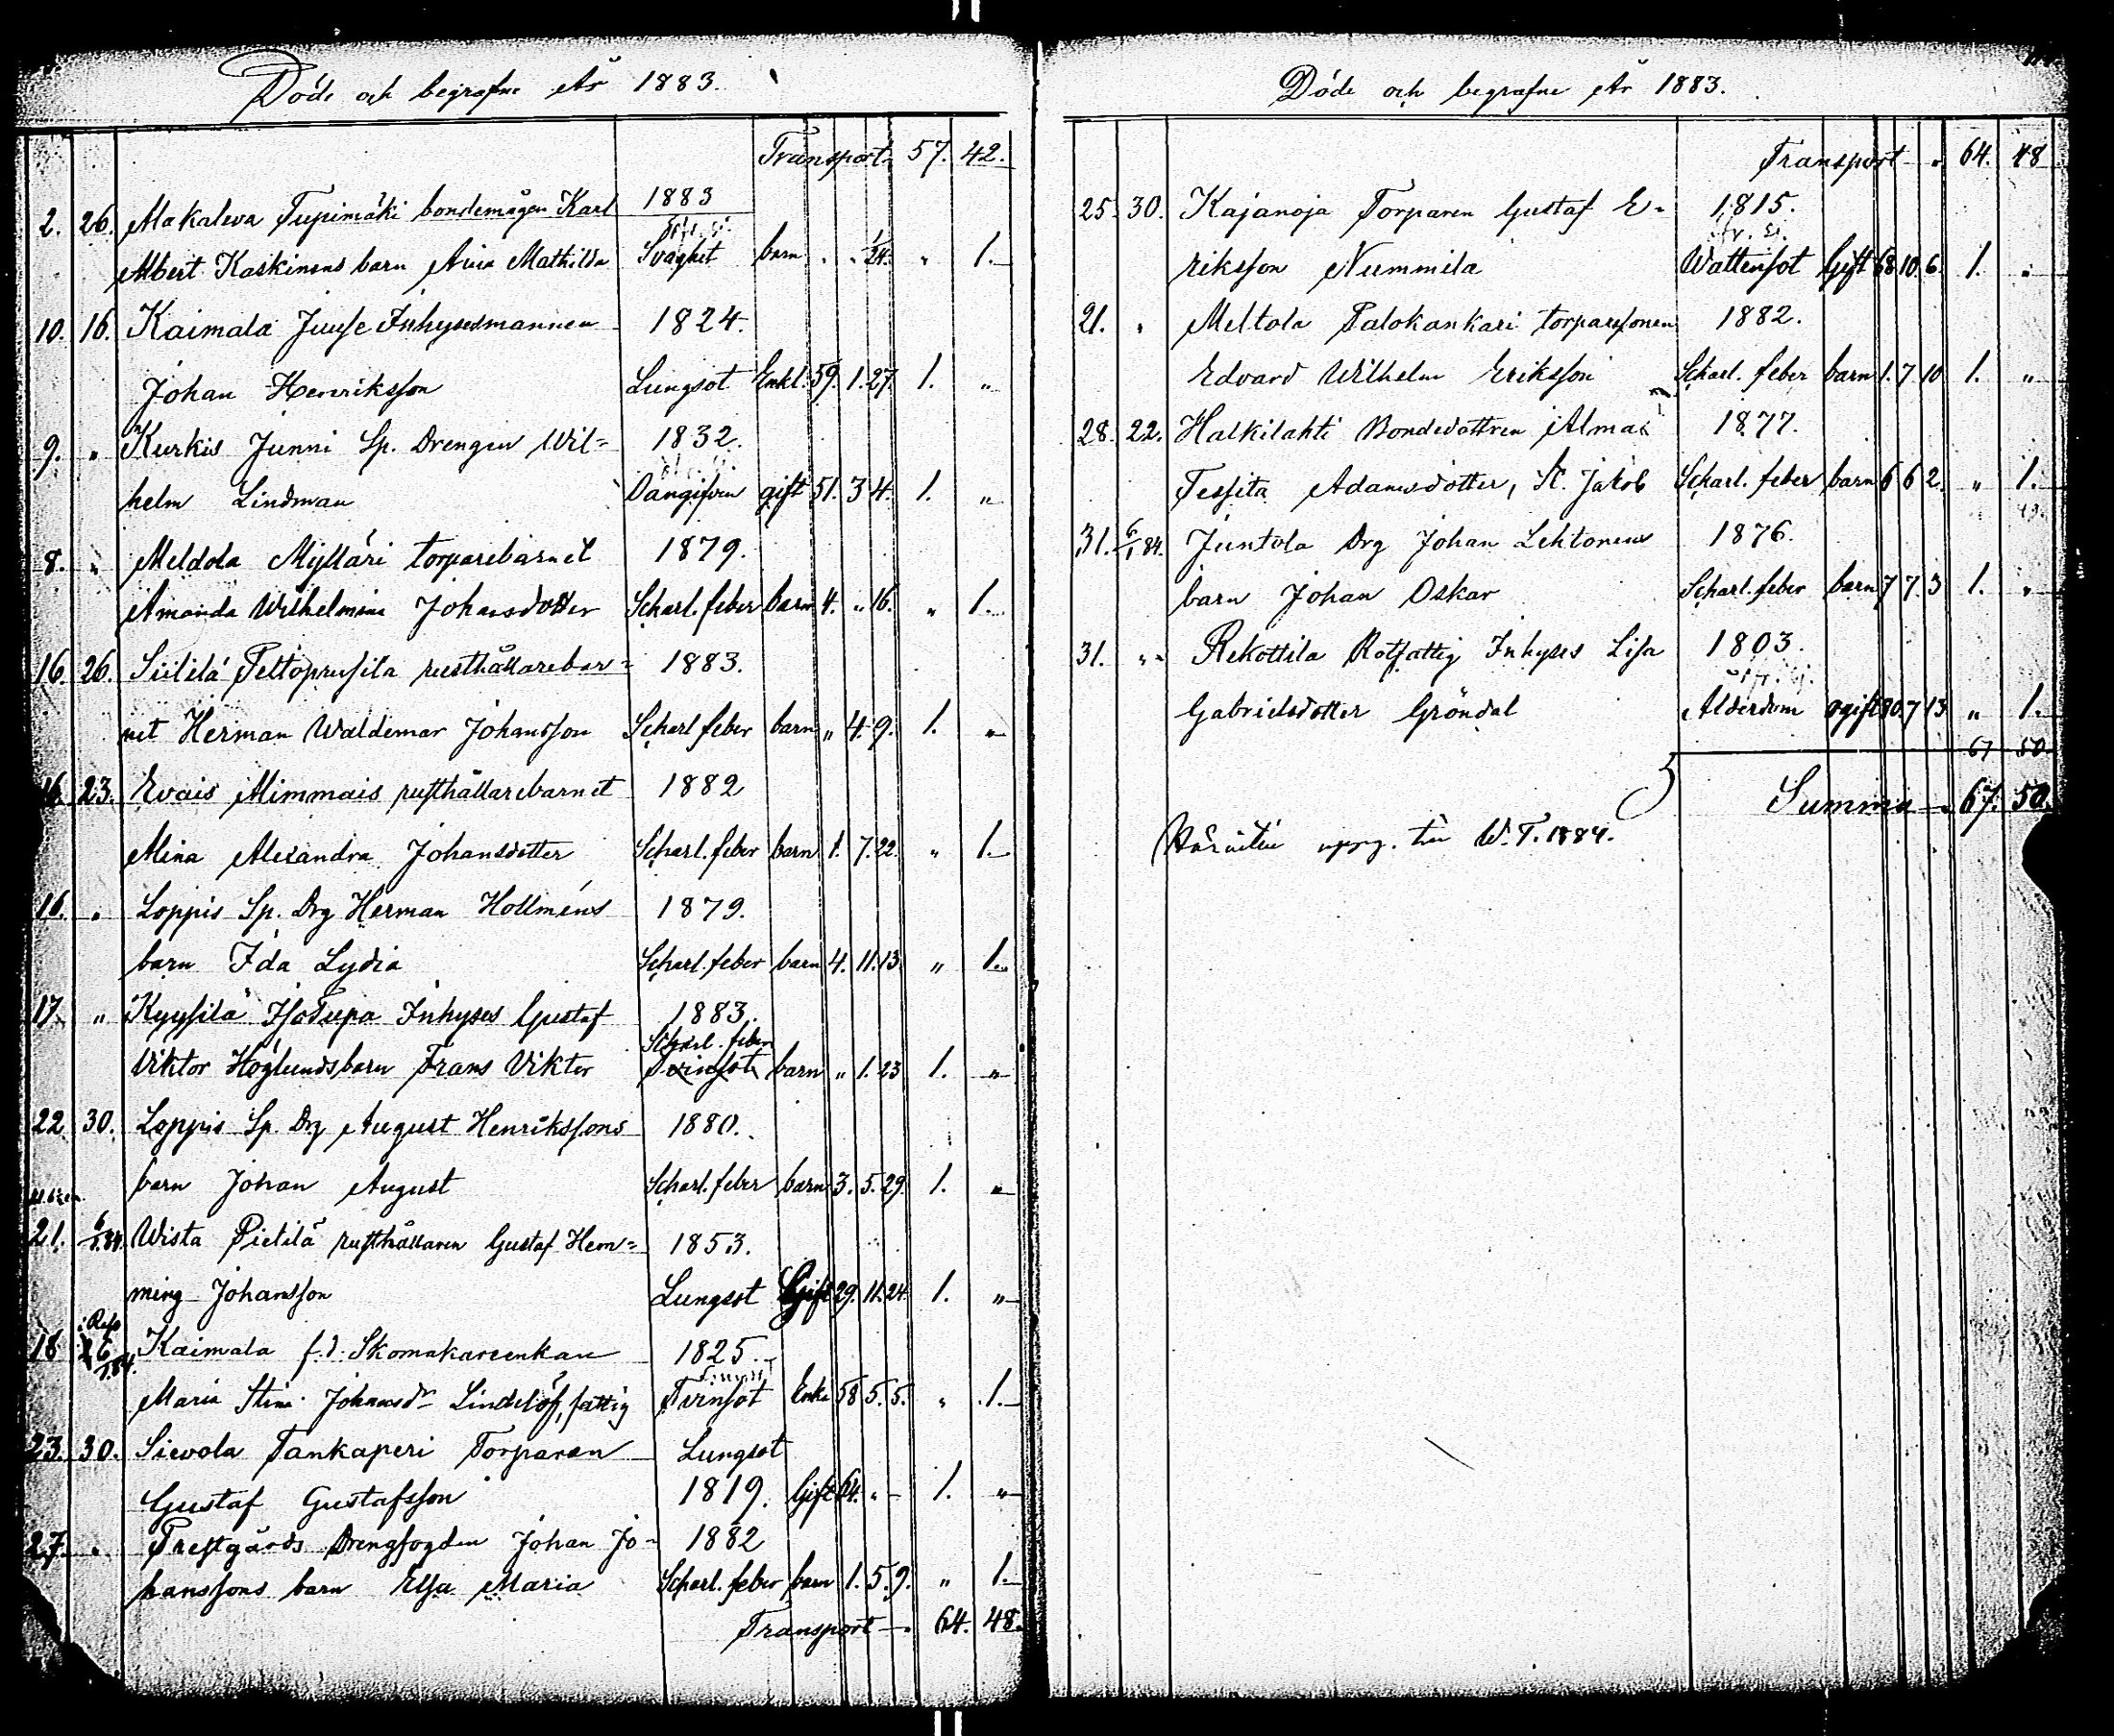 Döde och begrafne År 1883.
Transport 57. 42.
2. 26. Makaleva Tupimäki bondemågen Karl 1883
Albert Kaskinens barn Aina Mathilda Svaghet barn " " 1/24. " 1.
10. 16. Kaimala Juuse Inhysesmannen 1824.
Johan Henriksson Lungsot Enkl. 59. 1. 27. 1. "
9. " Kurkis Junni Sp. Drengen Wil= 1832.
helm Lindman Oangifven gift 51. 3 4. 1. "
8. " Meldola Mylläri torparebarnet 1879.
Amanda Wilhelmina Johansdotter Scharl. feber barn 4. " 16. " 1.
16. 26. Siililä Peltoprusila rusthållarebar= 1883.
net Herman Waldemar Johansson Scharl feber barn " 4. 9. 1. "
16. 23. Evais Mimmais rusthållarebarnet 1882
Mina Alexandra Johansdotter Scharl. feber barn 1. 7. 22. " 1.
16. " Loppis Sp. Drg Herman Hollméns 1879.
barn Ida Lydia Scharl. feber barn 4. 11. 13. " 1.
17. " Kyysilä Isotupa Inhyses Gustaf 1883.
Scharl. feber
Viktor Höglunds barn Frans Viktor Tvinsot barn " 1. 23 1. "
22. 30. Loppis Sp. Drg August Henrikssons 1880.
barn Johan August Scharl. feber barn 3. 5. 29. 1. "
21. 6/1.84. Wista Pietilä rusthållaren Gustaf Hem= 1853.
ming Johansson Lungsot Gift 29. 11. 24. 1. "
18 26 1.84. Kaimala f.d. Skomakareenkan 1825.
Maria Stina Johansdr Lindelöf, fattig Tvinsot Enka 58 5. 5. " 1.
23. 30. Sievola Tankaperi Torparen Lungsot
Gustaf Gustafsson 1819. Gift 64. " - 1. "
27. " Prestgårds Drengfogden Johan Jo= 1882
hanssons barn Elsa Maria Scharl. feber barn 1. 5. 9. " 1.
Transport 64. 48.
Döde och begrafne År 1883.
Transport 64. 48
25. 30. Kajanoja Torparen Gustaf E= 1815.
riksson Nummila Wattensot Gift 68 10. 6. 1. "
21. " Meltola Palokankari torparesonen 1882.
Edvard Wilhelm Eriksson Scharl. feber barn 1. 7 10 1. "
28. 22. Halkilahti Bondedottren Alma 1877.
Tessita Adamsdotter, St. Jakob Scharl. feber barn 6 6 2. " 1.
31. 6/1 84. Juntola Drg Johan Lehtonens 1876.
barn Johan Oskar Scharl. feber barn 7 7. 3 1. "
31. " Rekottila Rotfattig Inhyses Lisa 1803.
Gabrielsdotter Gröndal Ålderdom ogift 80. 7 13 " 1.
67 50
Summa 67. 50.
W. T. 1884.